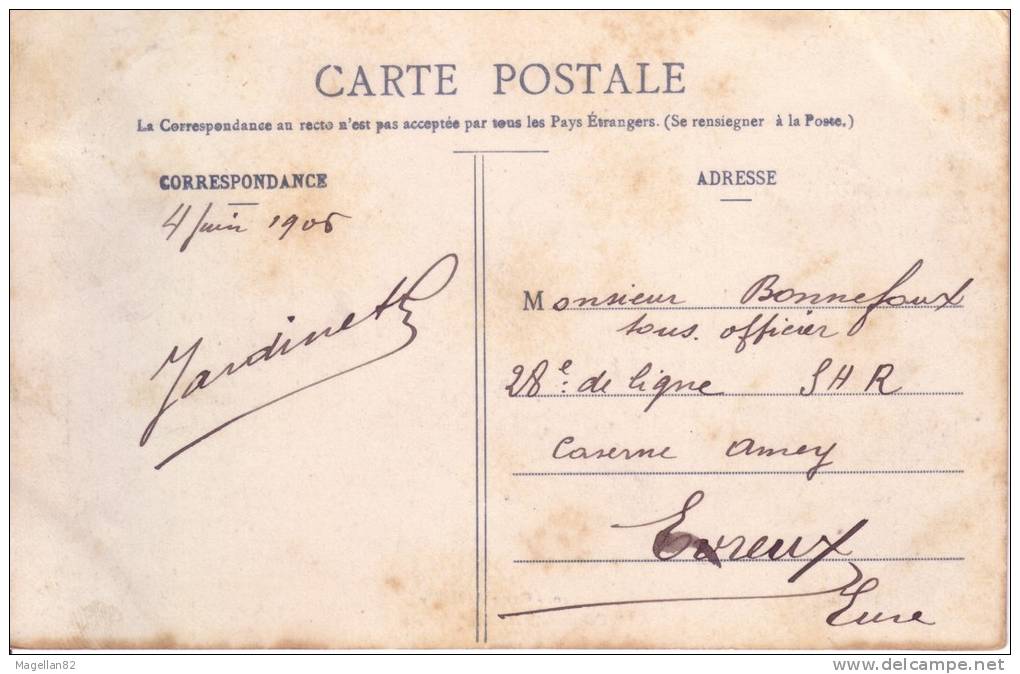 CARTE POSTALE
La Correspondance au recto n'est pas acceptée par tous les Pays Étrangers. (Se rensiegner à la Poste.)
CORRESPONDANCE
4 Juin 1906
Jardinet
ADRESSE
Monsieur Bonnefoux
sous. officier
28e. de ligne SHR
Caserne Amey
Evreux
Eure
Magellan82
delcampe.net